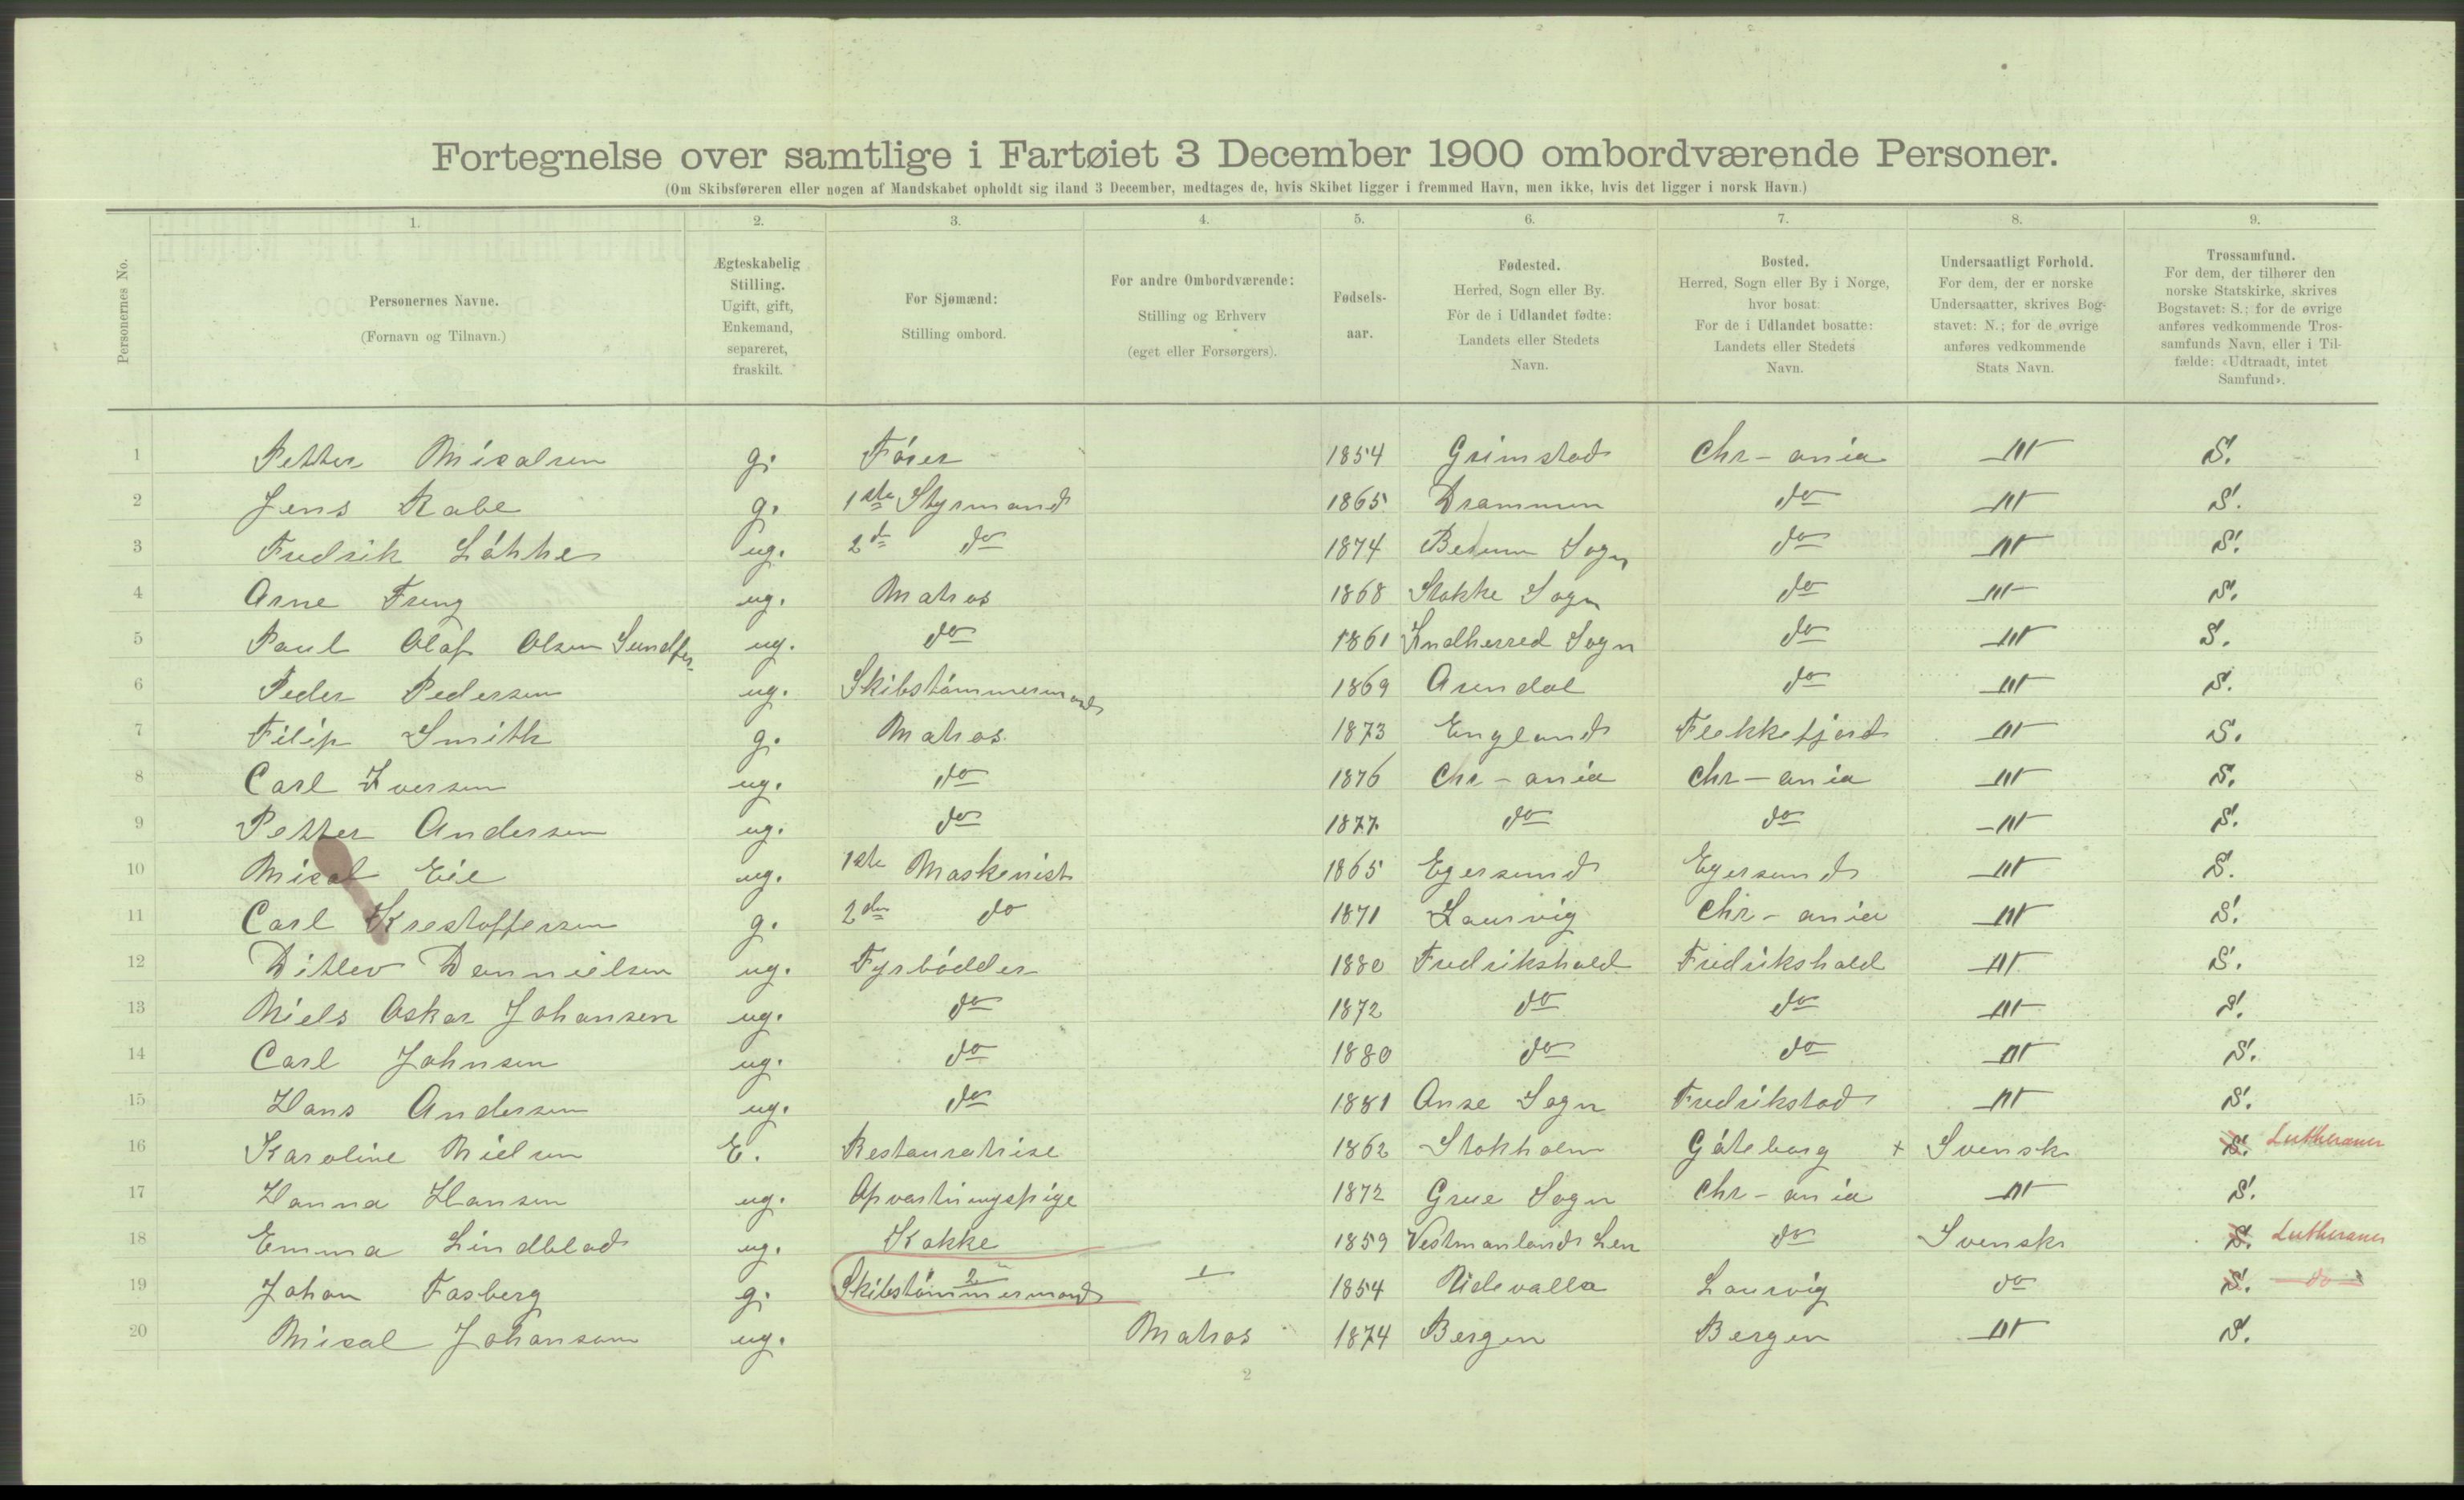 Fortegnelse over samtlige i Fartøiet 3 December 1900 ombordværende Personer.
(Om Skibsføreren eller nogen af Mandskabet opholdt sig iland 3 December, medtages de, hvis Skibet ligger i fremmed Havn, men ikke, hvis det ligger i norsk Havn.)
Personernes No.
1. 2. 3. 4. 5. 6. 7. 8. 9.
Personernes Navne.
(Fornavn og Tilnavn.)
Ægteskabelig
Stilling.
Ugift, gift,
Enkemand,
separeret,
fraskilt.
For Sjømænd:
Stilling ombord.
For andre Ombordværende:
Stilling og Erhverv
(eget eller Forsørgers).
Fødsels-
aar.
Fødested.
Herred, Sogn eller By.
For de i Udlandet fødte:
Landets eller Stedets
Navn.
Bosted.
Herred, Sogn eller By i Norge,
hvor bosat.
For de i Udlandet bosatte:
Landets eller Stedets
Navn.
Undersaatligt Forhold.
For dem, der er norske
Undersaatter, skrives Bog-
stavet: N.; for de øvrige
anføres vedkommende
Stats Navn.
Trossamfund.
For dem, der tilhører den
norske Statskirke, skrives
Bogstavet: S.; for de øvrige
anføres vedkommende Tros-
samfunds Navn, eller i Til-
fælde: «Udtraadt, intet
Samfund».
1 Petter Misalsen g. Fórer 1854 Grimstad Chr-ania N S.
2 Jens Rabe g. 1ste Styrmand 1865 Drammen do N S.
3 Fredrik Lókke ug. 2d do 1874 Berum Sogn do N S.
4 Arne Freng ug. Matros 1868 Stokke Sogn do N S.
5 Paul Olaf Olsen ug. do 1861 Sogn do N S.
6 Peder Pedersen ug. Skibstómmermand 1869 Arendal do N S.
7 Filip Smith g. Matros 1873 England Flekkefjord N S.
8 Carl Iversen ug. do 1876 Chr-ania Chr-ania N S.
9 Petter Andersen ug. do 1877 do do N S.
10 Misal Eie ug. 1ste Maskenist 1865 Egersund Egersund N S.
11 Carl Krestoffersen g. 2den do 1871 Laurvig Chr-ania N S.
12 Ditlev Dannielsen ug. Fyrbódder 1880 Fredrikshald Fredrikshald N S.
13 Niels Oskar Johansen ug. do 1872 do do N S.
14 Carl Johnsen ug. do 1880 do do N S.
15 Hans Andersen ug. do 1881 Onsø Sogn Fredrikstad N S.
16 Karoline Nielsen E. Restauratrise 1862 Stokholm Góteborg + Svensk S. Lutheraner
17 Hanna Hansen ug. Opvartningspige 1872 Grue Sogn Chr-ania N S.
18 Emma Lindblad ug. Kokke 1859 Vestmanlands Len do Svensk S. Lutheraner
19 Johan Fasberg g. Skibstómmermand 2 1 1854 Udevalla Laurvig do S. do
20 Misal Johansom ug. Matros 1874 Bergen Bergen N S.
2